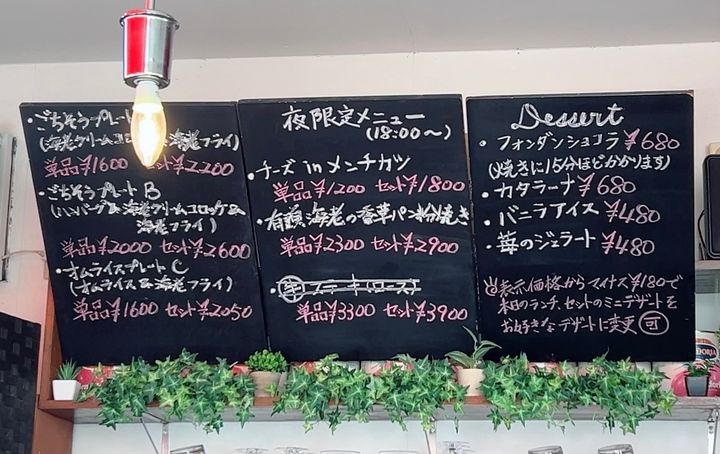 ・ごちそうプレート
(海老クリームコロッケ&海老フライ)
単品¥1600 セット¥2200
・ごちそうプレートB
(ハンバーグ&海老クリームコロッケ&
海老フライ)
単品¥2000 セット¥2600
・オムライスプレートC
(オムライス&海老フライ)
単品¥1600 セット¥2050
夜限定メニュー
(18:00〜)
・チーズinメンチカツ
単品¥1200 セット¥1800
・有頭海老の香草パン粉焼き
単品¥2300 セット¥2900
・牛ステーキ(ロース)
単品¥3300 セット¥3900
Dessert
・フォンダンショコラ ¥680
(焼きに15分ほどかかります)
・カタラーナ ¥680
・バニラアイス ¥480
・苺のジェラート ¥480
表示価格からマイナス¥180で
本日のランチ、セットのミニデザートを
お好きなデザートに変更 可